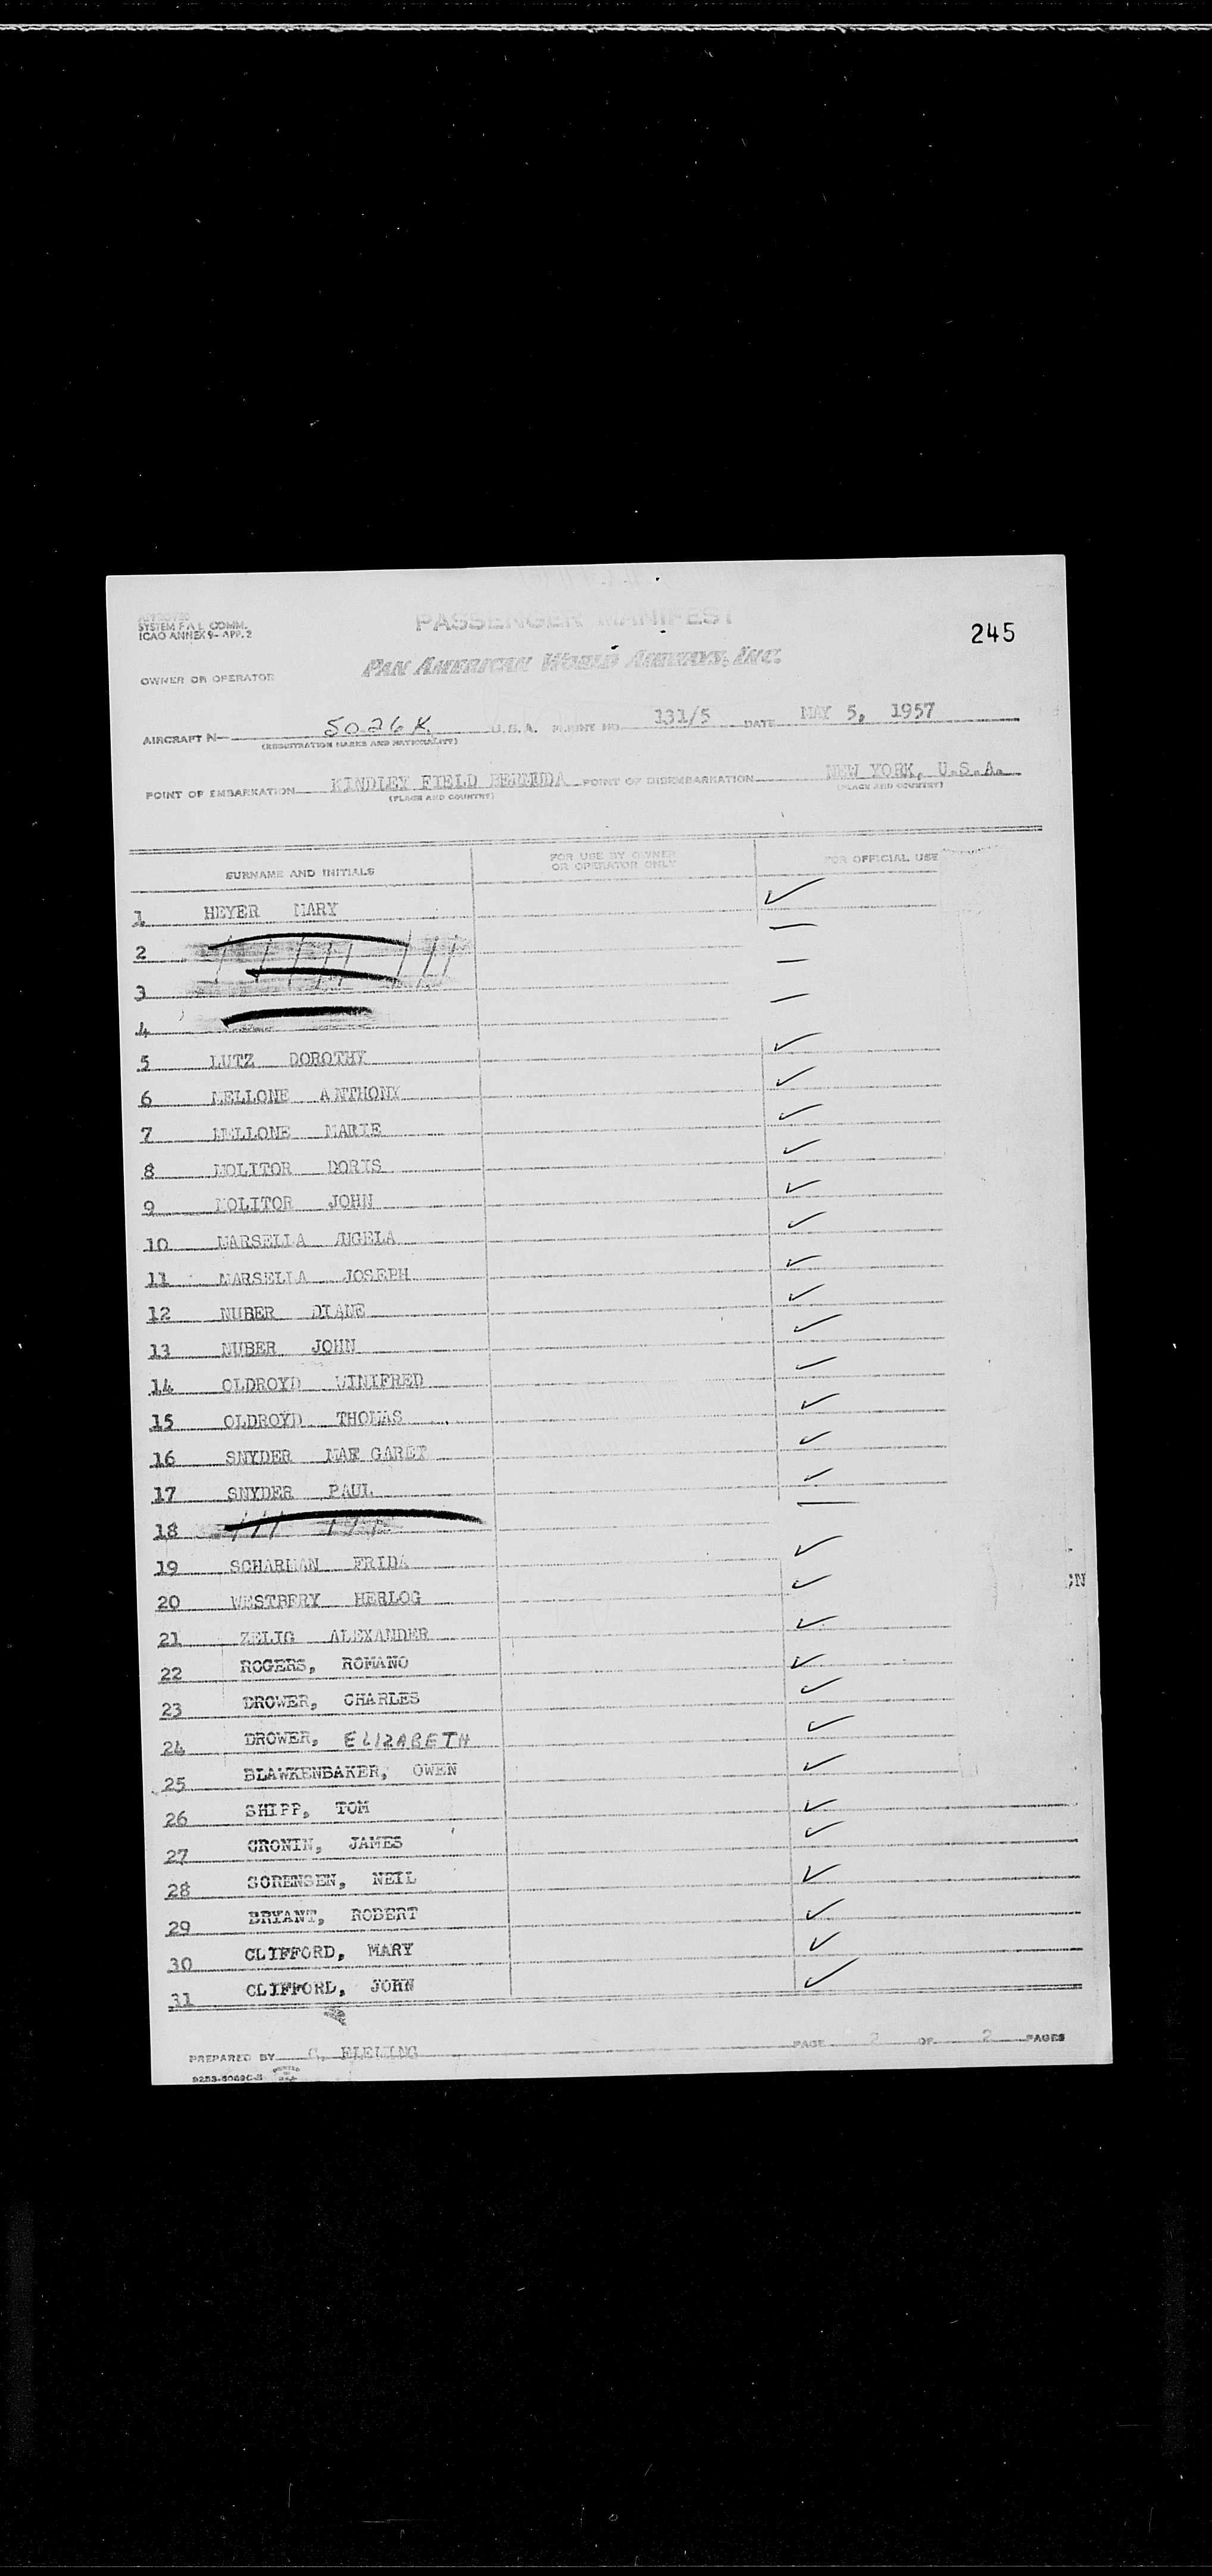 APPROVED
SYSTEM F A L COMM.
ICAO ANNEX 9- APP. 2
PASSENGER MANIFEST
245
PAN AMERICAN WORLD AIRWAYS, INC.
OWNER OR OPERATOR
AIRCRAFT N- 5026K U.S.A. FLIGHT NO. 131/5 DATE MAY 5, 1957
(REGISTRATION MARKS AND NATIONALITY)
POINT OF EMBARKATION KINDLEY FIELD BERMUDA POINT OF DISEMBARKATION NEW YORK, U.S.A.
(PLACE AND COUNTRY) (PLACE AND COUNTRY)
SURNAME AND INITIALS FOR USE BY OWNER OR OPERATOR ONLY FOR OFFICIAL USE
1 HEYER MARY
2
3
4
5 LUTZ DOROTHY
6 MELLONE ANTHONY
7 MELLONE MARIE
8 MOLITOR DORIS
9 MOLITOR JOHN
10 MARSELLA ANGELA
11 MARSELLA JOSEPH
12 NUBER DIANE
13 NUBER JOHN
14 OLDROYD WINIFRED
15 OLDROYD THOMAS
16 SNYDER MAR GARET
17 SNYDER PAUL
18
19 SCHARMAN FRIDA
20 WESTBERY HERLOG
21 ZELIG ALEXANDER
22 ROGERS, ROMANO
23 DROWER, CHARLES
24 DROWER, ELIZABETH
25 BLAWKENBAKER, OWEN
26 SHIPP, TOM
27 CRONIN, JAMES
28 SORENSEN, NEIL
29 BRYANT, ROBERT
30 CLIFFORD, MARY
31 CLIFFORD, JOHN
PREPARED BY C. FLEMING PAGE 2 OF 2 PAGES